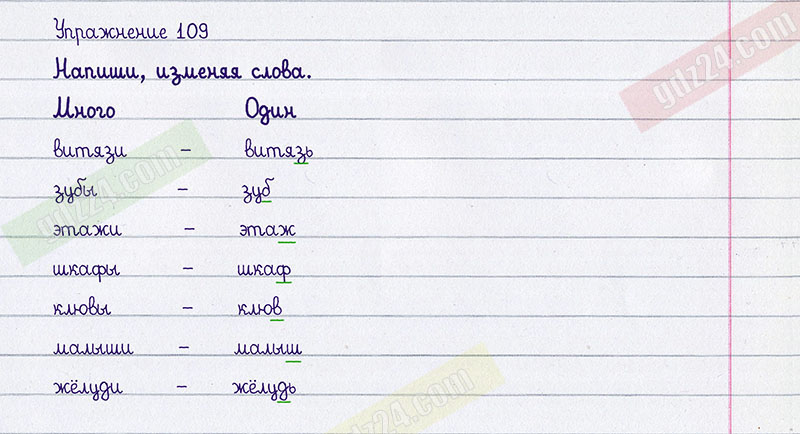 Упражнение 109
Напиши, изменяя слова.
Много Один
витязи – витязь
зубы – зуб
этажи – этаж
шкафы – шкаф
клювы – клюв
малыши – малыш
жёлуди – жёлудь
gdz24.com
gdz24.com
gdz24.com